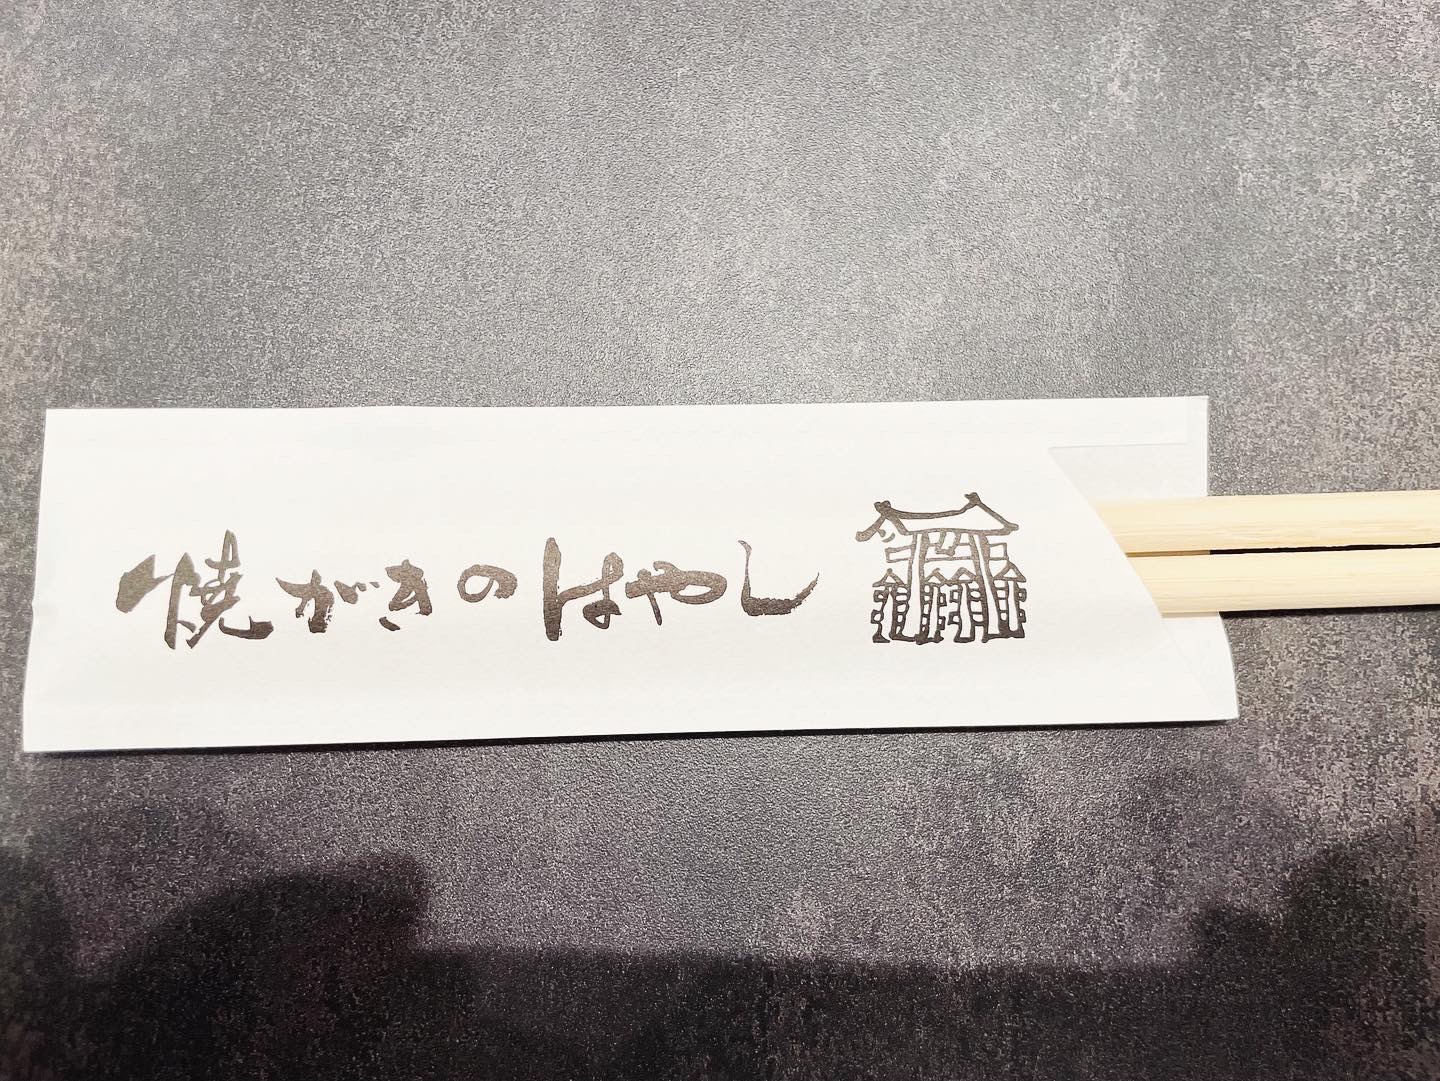 焼がきのはやし